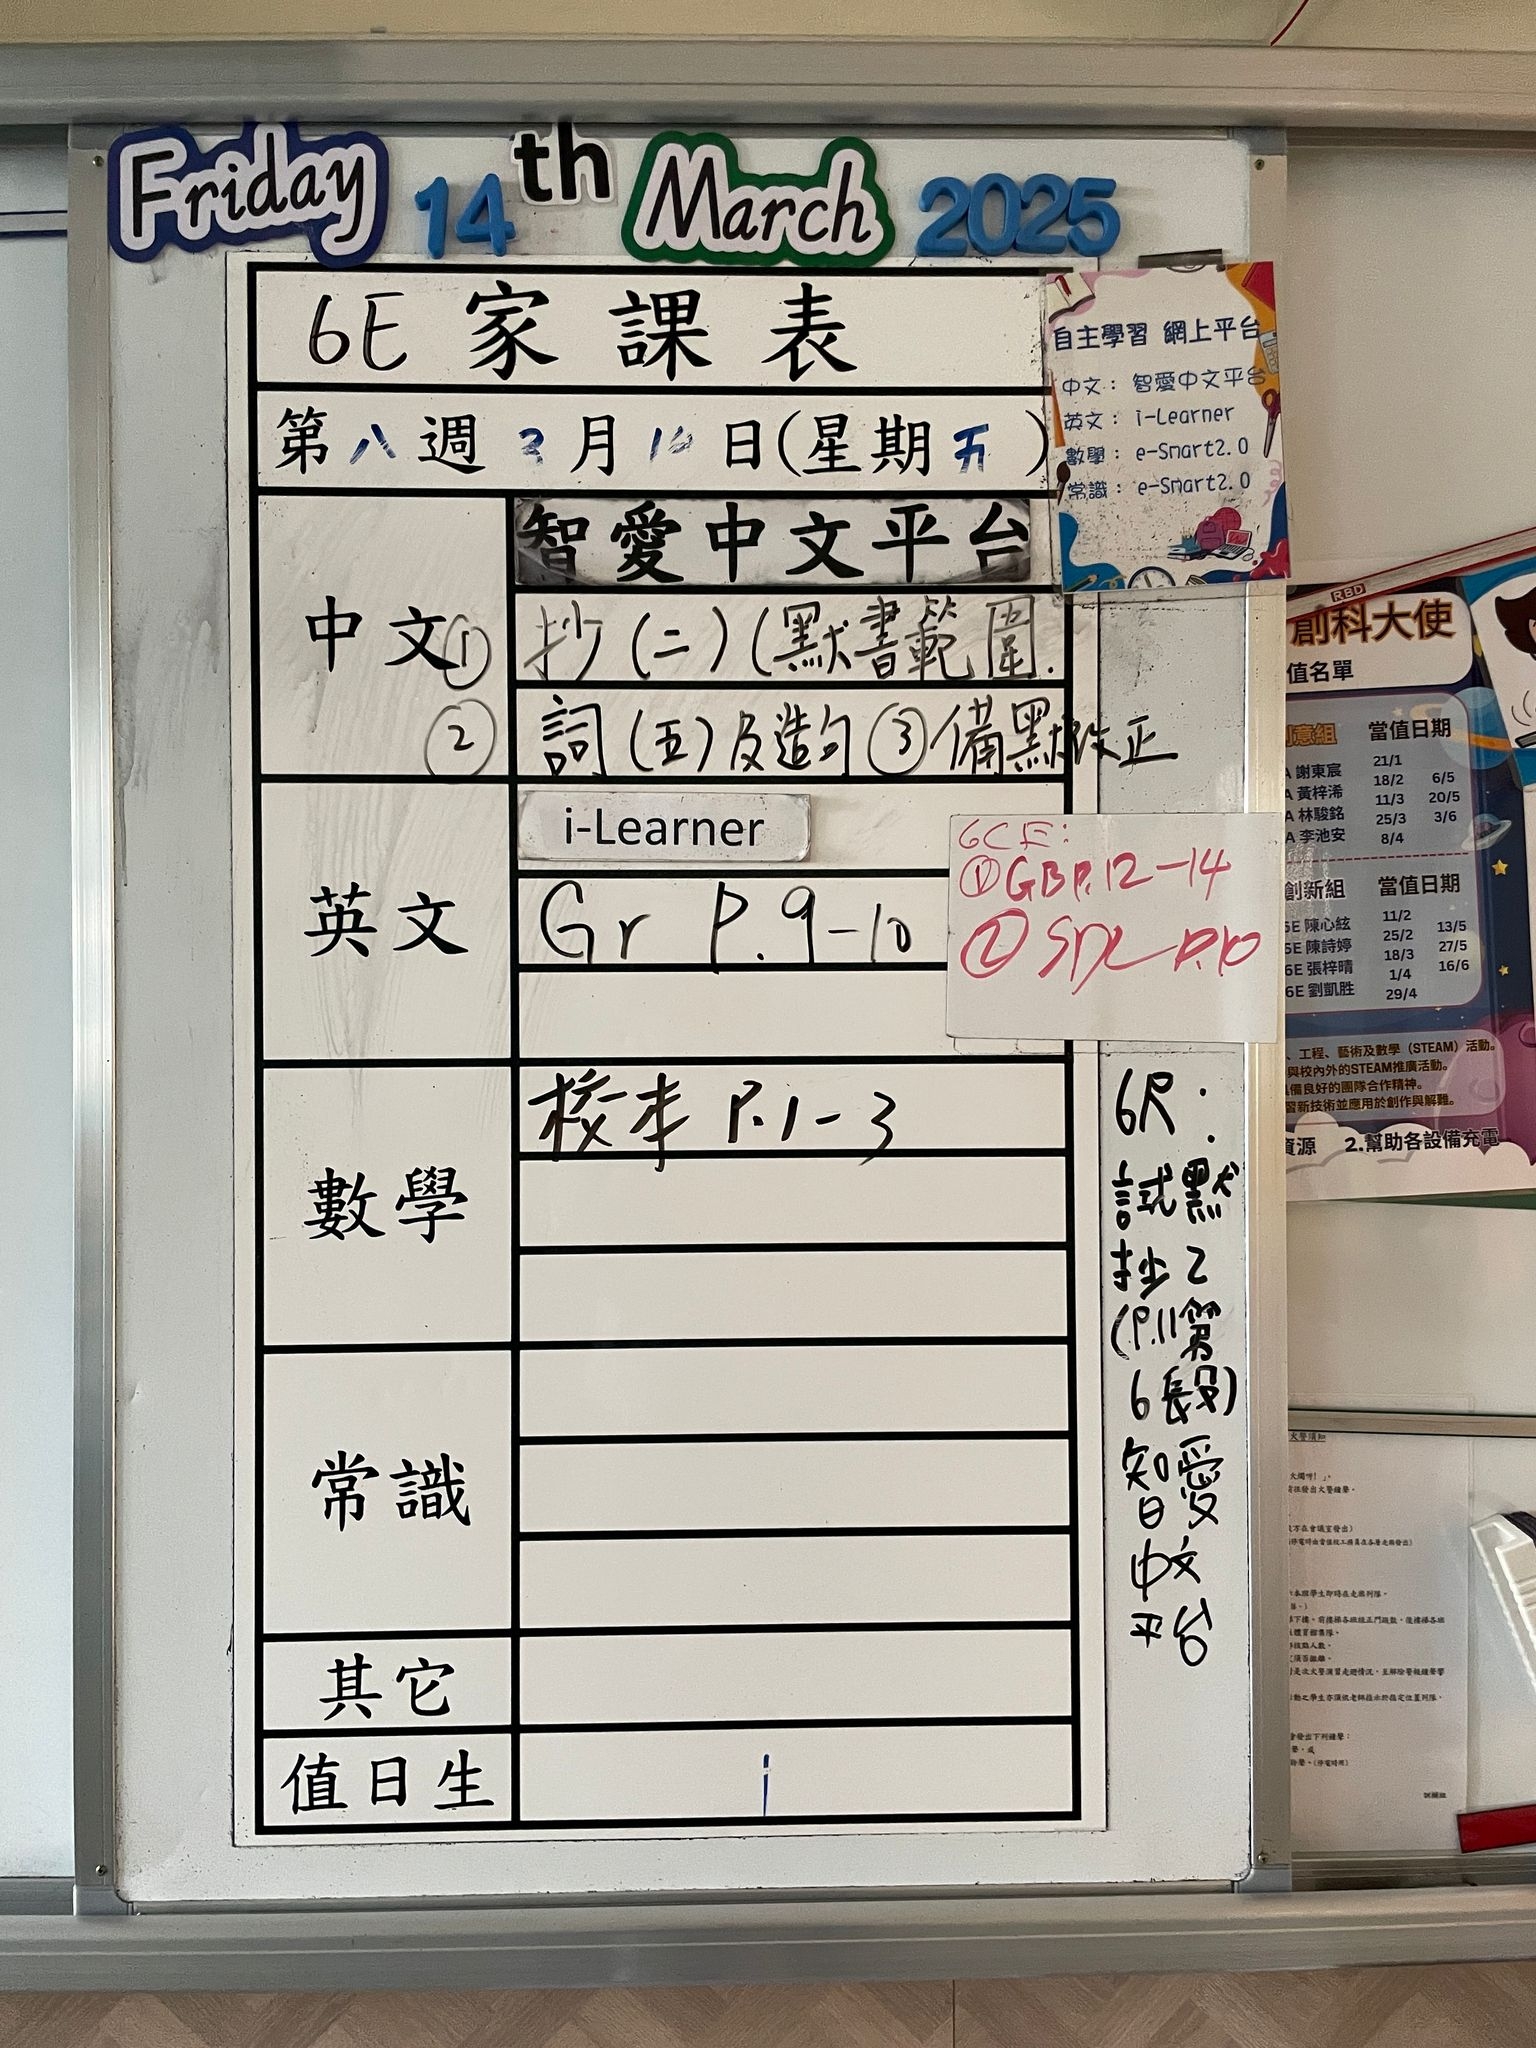 Friday 14th March 2025
6E 家課表
第八週 3月14日(星期五)
自主學習 網上平台
中文： 智愛中文平台
英文： i-Learner
數學： e-Smart2.0
常識： e-Smart2.0
中文
智愛中文平台
① 抄(二)(默書範圍.
② 詞(五)及造句 ③備默改正
英文
i-Learner
Gr P.9-10
6CE:
①GB P.12-14
② SDL P.10
數學
校本 P.1-3
常識
其它
值日生
1
6R:
試默
抄2
(P.11第
6段)
智愛
中文
平台
RED
創科大使
值名單
創意組 當值日期
A 謝東宸 21/1
A 黃梓浠 18/2 6/5
A 林駿銘 11/3 20/5
A 李池安 25/3 3/6
8/4
創新組 當值日期
6E 陳心絃 11/2
6E 陳詩婷 25/2 13/5
6E 張梓晴 18/3 27/5
6E 劉凱胜 1/4 16/6
29/4
、工程、藝術及數學（STEAM）活動。
與校內外的STEAM推廣活動。
備良好的團隊合作精神。
習新技術並應用於創作與解難。
資源 2.幫助各設備充電
火警須知